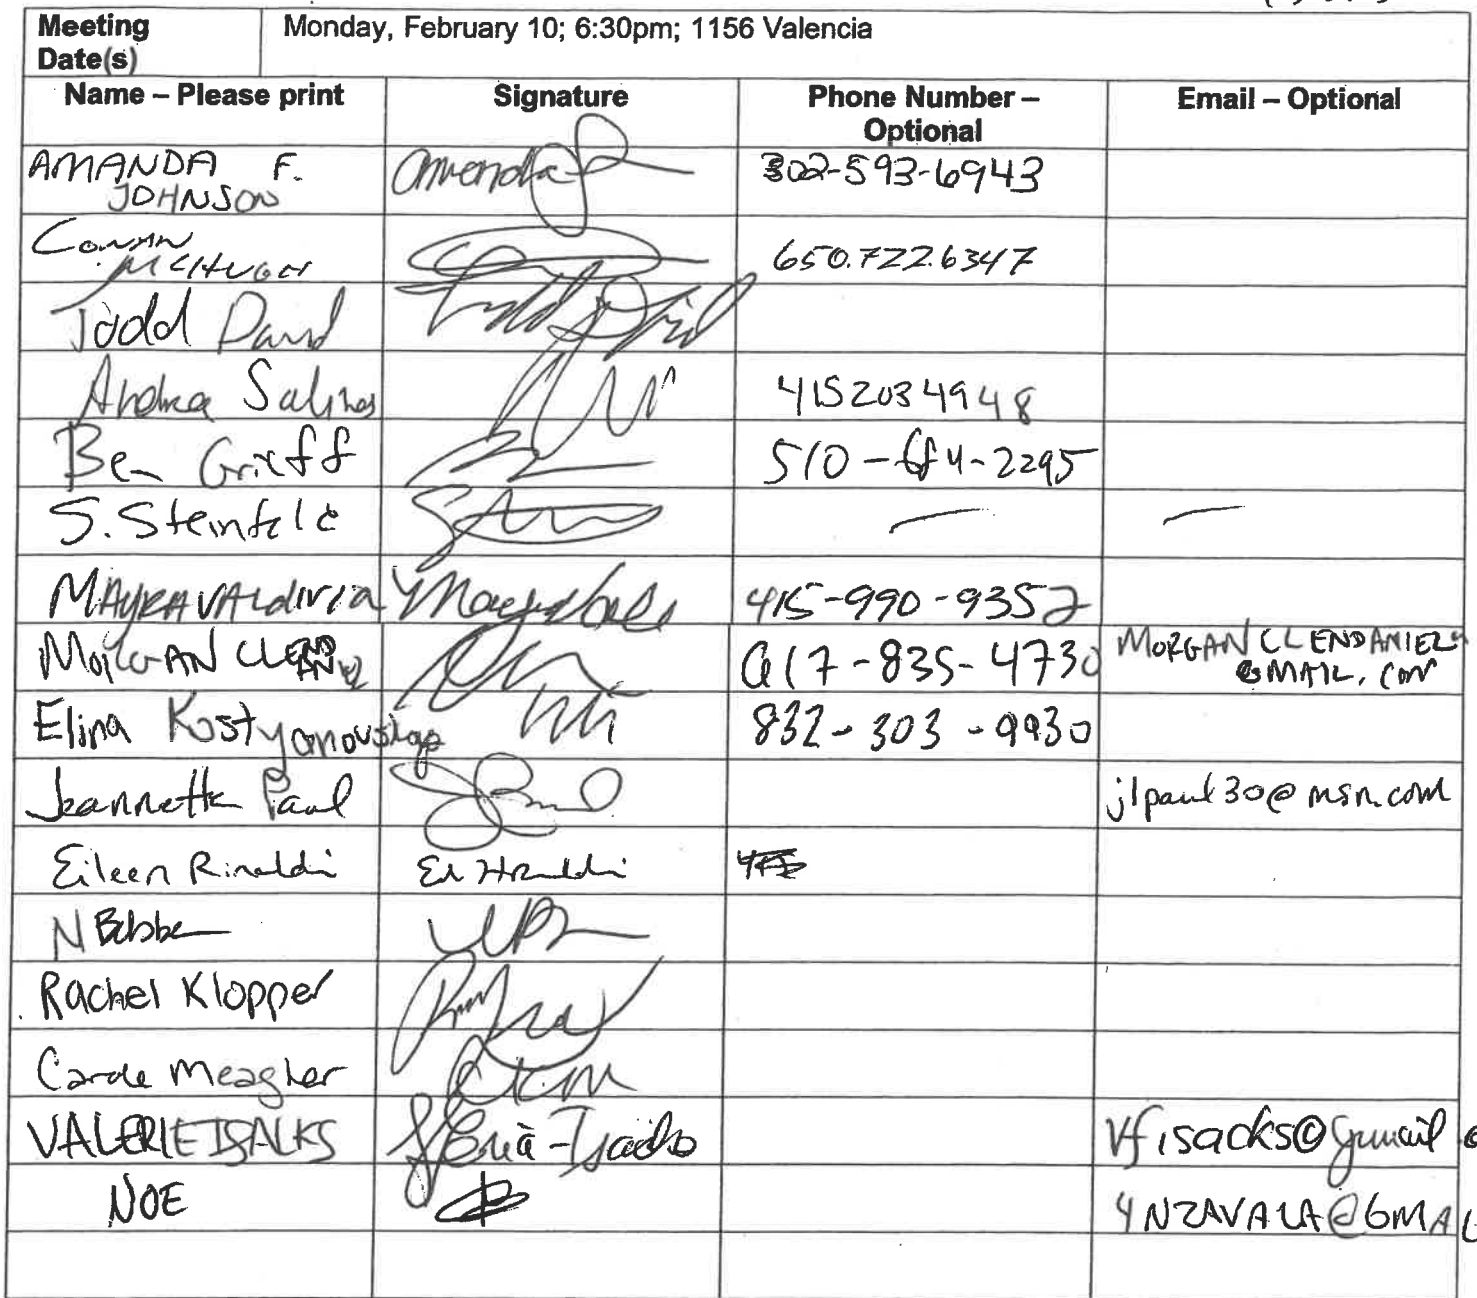 Meeting Date(s) Monday, February 10; 6:30pm; 1156 Valencia
Name – Please print Signature Phone Number – Optional Email – Optional
AMANDA F. JOHNSON Amanda 302-593-6943
CONAN MCHUGH 650.722.6347
Todd David Todd David
Andrea Salinas 4152034948
Ben Grieff 510- -2295
S. Steinfeld — —
MAYRA VALdivia 415-990-9352
MORGAN CLENDANIEL 617-835-4730 MORGANCLENDANIEL@ GMAIL.COM
Elina Kostyanovskaya 832-303-9930
Jeannette Paul jlpaul30@msn.com
Eileen Rinaldi
N
Rachel Klopper
Carole Meagher
VALERIE ISAACKS vfisacks@gmail
NOE 4NZAVALA@GMAIL